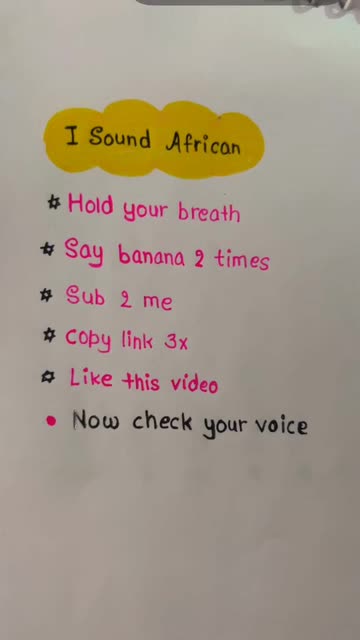 I Sound African
Hold your breath
Say banana 2 times
Sub 2 me
Copy link 3x
Like this video
Now check your voice